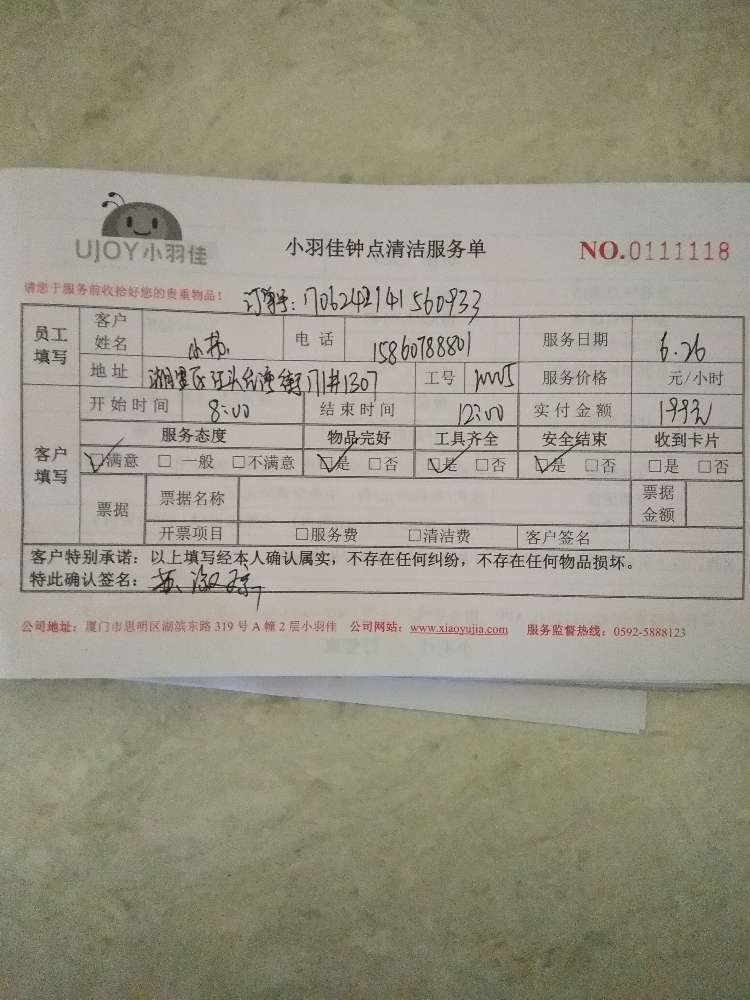 UJOY小羽佳
小羽佳钟点清洁服务单 NO.0111118
请您于服务前收拾好您的贵重物品！
员工填写 客户姓名 小 电话 15860788801 服务日期 6.26
地址 湖里区江头台湾街 1307 工号 服务价格 元/小时
客户填写 开始时间 8:00 结束时间 12:00 实付金额 199元
服务态度 物品完好 工具齐全 安全结束 收到卡片
☑满意 □一般 □不满意 ☑是 □否 ☑是 □否 ☑是 □否 □是 □否
票据 票据名称 票据金额
开票项目 □服务费 □清洁费 客户签名
客户特别承诺：以上填写经本人确认属实，不存在任何纠纷，不存在任何物品损坏。
特此确认签名：
公司地址：厦门市思明区湖滨东路 319 号 A 幢 2 层小羽佳 公司网站：www.xiaoyujia.com 服务监督热线：0592-5888123